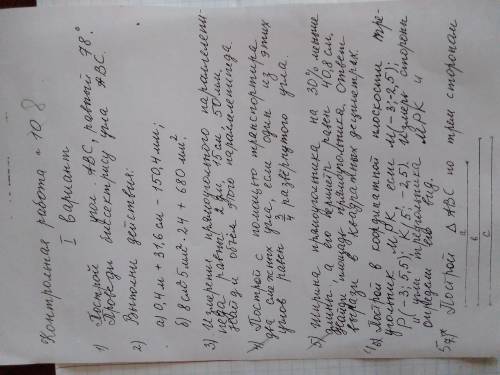 Контрольная работа № 10
I вариант
1) Построй угол ABC, равный 78°
Проведи биссектрису угла ABC.
2) Выполни действия:
а) 0,4 м + 31,6 см - 150,4 мм;
б) 8 см² 5 мм² · 24 + 680 мм²
3) Измерения прямоугольного параллелепи-
педа равны: 2 дм, 15 см, 50 мм.
Найди объём этого параллелепипеда
4) Построй с помощью транспортира
два смежных угла, если один из этих
углов равен 3/4 развернутого угла
5) Ширина прямоугольника на 30% меньше
длины, а его периметр равен 40,8 см.
Найди площадь прямоугольника. Ответ
вырази в квадратных дециметрах.
6) Построй в координатной плоскости тре-
угольник МРК, если М(-3;-2,5);
Р(-3; 5,5); К(5; -2,5). Измерь стороны
и углы треугольника МРК и
определи его вид.
7* Построй △ ABC по трем сторонам
a
b
c